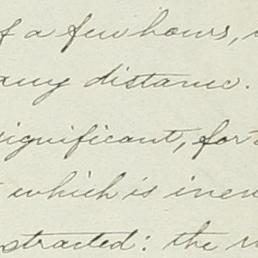 of a few hours,
any distance.
significant, for
which is
stracted: the